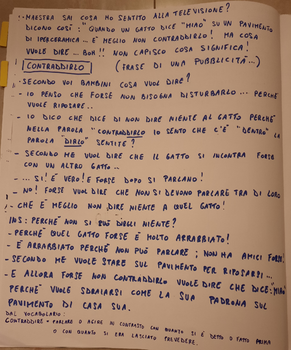 - MAESTRA SAI COSA HO SENTITO ALLA TELEVISIONE?
DICONO COSÌ: "QUANDO UN GATTO DICE "MIAO" SU UN PAVIMENTO
DI IPERCERAMICA... È MEGLIO NON CONTRADDIRLO! MA COSA
VUOLE DIRE... BOH!! NON CAPISCO COSA SIGNIFICA!
CONTRADDIRLO (FRASE DI UNA PUBBLICITÀ...)
- SECONDO VOI BAMBINI COSA VUOL DIRE?
- IO PENSO CHE FORSE NON BISOGNA DISTURBARLO... PERCHÉ
VUOLE RIPOSARE..
- IO DICO CHE DICE DI NON DIRE NIENTE AL GATTO PERCHÉ
NELLA PAROLA "CONTRADDIRLO" IO SENTO CHE C'È "DENTRO" LA
PAROLA "DIRLO" SENTITE?
- SECONDO ME VUOL DIRE CHE IL GATTO SI INCONTRA FORSE
CON UN ALTRO GATTO..
- ... SI! È VERO! E FORSE DOPO SI PARLANO!
- NO! FORSE VUOL DIRE CHE NON SI DEVONO PARLARE TRA DI LORO
- CHE È MEGLIO NON DIRE NIENTE A QUEL GATTO!
INS: PERCHÉ NON SI PUÒ DIRGLI NIENTE?
- PERCHÉ QUEL GATTO FORSE È MOLTO ARRABBIATO!
- È ARRABBIATO PERCHÉ NON PUÒ PARLARE; NON HA AMICI FORSE
- SECONDO ME VUOLE STARE SUL PAVIMENTO PER RIPOSARSI...
- E ALLORA FORSE NON CONTRADDIRLO VUOLE DIRE CHE DICE: "MIAO"
PERCHÉ VUOLE SDRAIARSI COME LA SUA PADRONA SUL
PAVIMENTO DI CASA SUA.
DAL VOCABOLARIO:
CONTRADDIRE = PARLARE O AGIRE IN CONTRASTO CON QUANTO SI È DETTO O FATTO PRIMA
O CON QUANTO SI ERA LASCIATO PREVEDERE.